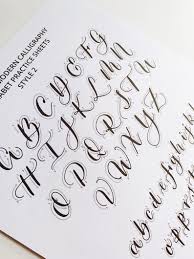 MODERN CALLIGRAPHY
ABET PRACTICE SHEETS
STYLE 2
A B C D E F G
H I J K L M N
O P Q R S T U
V W X Y Z
a b c d e f g